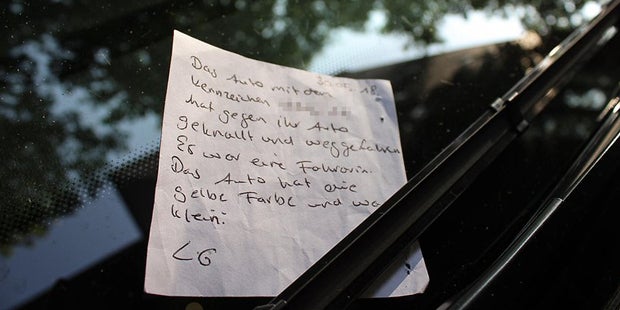 Das Auto mit dem
Kennzeichen
hat gegen ihr Auto
geknallt und weggefahren
Es war eine Fahrerin.
Das Auto hat eine
gelbe Farbe und wa
klein.
LG